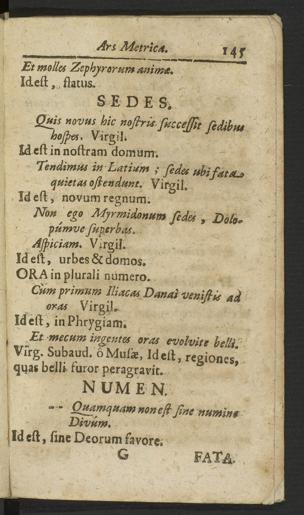 Ars Metrica. 145
Et molles Zephyrorum animæ.
Id est, flatus.
SEDES.
Quis novus hic nostris successit sedibus
hospes. Virgil.
Id est in nostram domum.
Tendimus in Latium; sedes ubi fata
quietas ostendunt. Virgil.
Id est, novum regnum.
Non ego Myrmidonum sedes, Dolo-
púmve superbas.
Aspiciam. Virgil.
Id est, urbes & domos.
ORA in plurali numero.
Cùm primum Iliacas Danai venistis ad
oras Virgil.
Id est, in Phrygiam.
Et mecum ingentes oras evolvite belli.
Virg. Subaud. ô Musæ, Id est, regiones,
quas belli furor peragravit.
NUMEN.
-- Quamquam non est sine numine
Divûm.
Id est, sine Deorum favore.
G FATA.